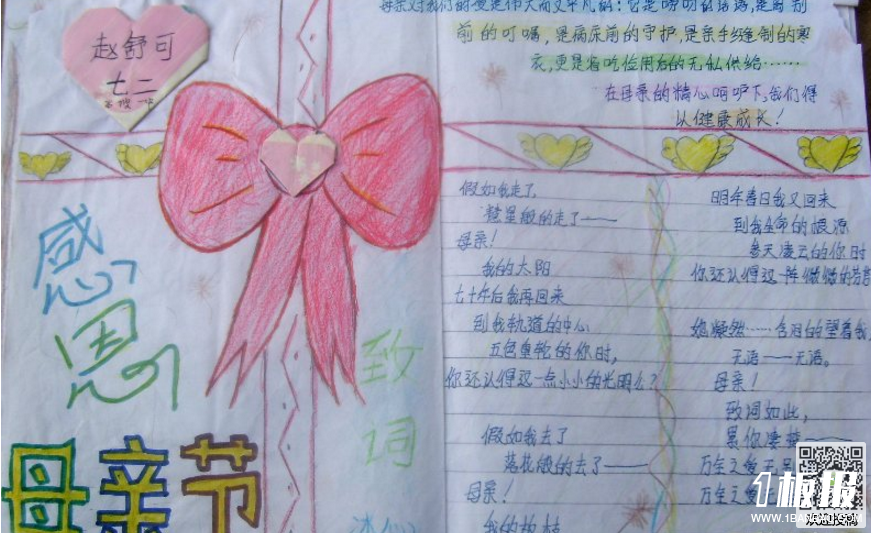 赵舒可
七二
母亲对我们的爱是伟大而又平凡的:它是唠叨的话语,是离别
前的叮嘱,是病床前的守护,是亲手缝制的寒
衣,更是省吃俭用后的无私供给……
在母亲的精心呵护下,我们得
以健康成长!
感
恩
母亲节
致
词
冰心
假如我走了,
彗星般的走了——
母亲!
我的太阳
七十年后我再回来
到我轨道的中心
五色重轮的你时,
你还认得这一点小小的光明么?
假如我去了
落花般的去了——
母亲!
我的故枝
明年春日我又回来
到我生命的根源
参天凌云的你时
你还认得这一阵微微的芳
她凝然……含泪的望着我,
无语——无语。
母亲!
致词如此,
累你凄楚——
万全之爱无
万全之爱无
1板报
WWW.1BANBAO.COM
欢迎投稿